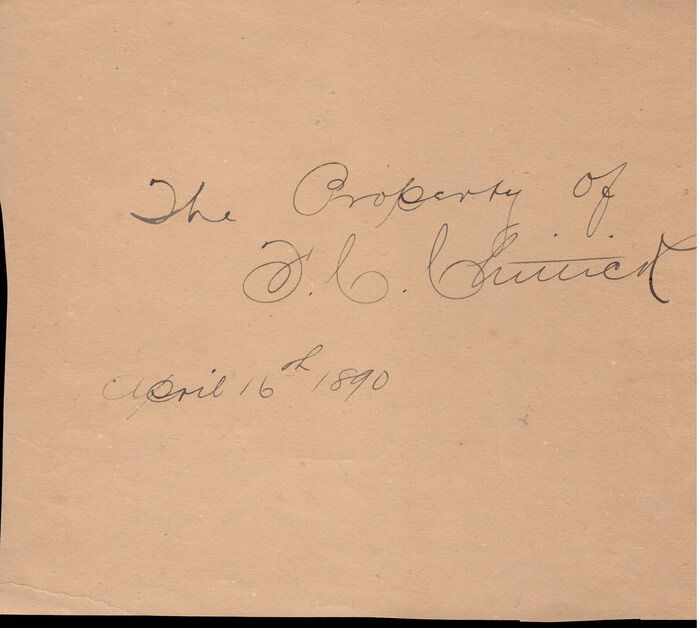 The Property of
F. C.
April 16th 1890